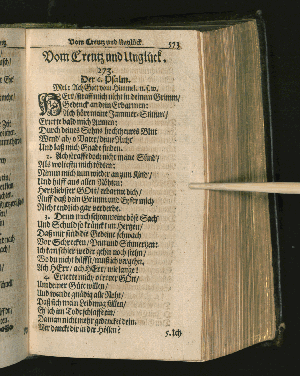 Vom Creutz und Unglück. 573
Vom Creutz und Unglück.
273.
Der 6. Psalm.
Mel: Ach Gott vom Himmel. u.s.w.
HErr straff mich nicht in deinem Grimm/
Gedenck an dein Erbarmen:
Ach höre meine Jammer-Stimm/
Errette bald mich Armen:
Durch deines Sohns hochtheures Blut
Wend ab/ o Vater/ deine Ruht
Und laß mich Gnade finden.
2. Ach straffe doch nicht meine Sünd/
Als wolstestu mich tödten:
Nimm mich nun wieder an zum Kind/
Und hilff aus allen Nöthen:
Hertzliebster GOtt/ erbarme dich/
Auff daß dein Grimm und Eyfer mich
Nicht endlich gar verderbe.
3. Denn mich schon meine böse Sach
Und Schuld so kränckt im Hertzen/
Daß mir sind die Gebeine schwach
Vor Schrecken/ Pein und Schmertzen:
Ich kan schier weder gehn noch stehn/
Wo du nicht hilffst/ muß ich vergehn.
Ach HErr/ ach HErr/ wie lange!
4. Errette mich o treuer GOtt/
Um deiner Güte willen/
Und wende gnädig alle Noht/
Daß ich man Leib mag stillen/
So ich im Tode schlaff ein/
Da man nicht mehr gedencket dein.
Wer danckt dir in der Höllen?
5. Ich